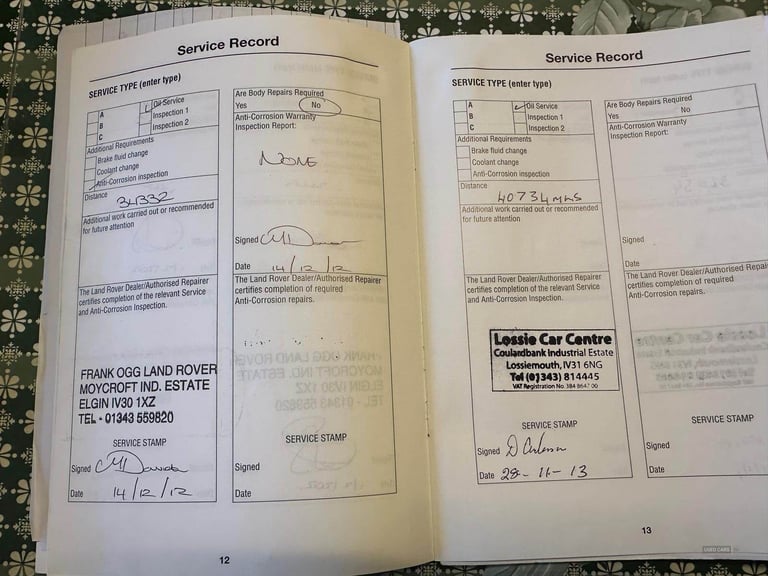 Service Record
SERVICE TYPE (enter type)
A
B
C
Oil Service
Inspection 1
Inspection 2
Additional Requirements
Brake fluid change
Coolant change
Anti-Corrosion inspection
Distance 34332
Additional work carried out or recommended
for future attention
The Land Rover Dealer/Authorised Repairer
certifies completion of the relevant Service
and Anti-Corrosion Inspection.
FRANK OGG LAND ROVER
MOYCROFT IND. ESTATE
ELGIN IV30 1XZ
TEL - 01343 559820
SERVICE STAMP
Signed
Date 14/12/12
Are Body Repairs Required
Yes No
Anti-Corrosion Warranty
Inspection Report:
NONE
Signed
Date 14/12/12
The Land Rover Dealer/Authorised Repairer
certifies completion of required
Anti-Corrosion repairs.
SERVICE STAMP
Signed
Date
12
Service Record
SERVICE TYPE (enter type)
A
B
C
Oil Service
Inspection 1
Inspection 2
Additional Requirements
Brake fluid change
Coolant change
Anti-Corrosion inspection
Distance 40734 MLS
Additional work carried out or recommended
for future attention
The Land Rover Dealer/Authorised Repairer
certifies completion of the relevant Service
and Anti-Corrosion Inspection.
Lossie Car Centre
Coulardbank Industrial Estate
Lossiemouth, IV31 6NG
Tel (01343) 814445
VAT Registration No. 384 8647 00
SERVICE STAMP
Signed
Date 28-11-13
Are Body Repairs Required
Yes No
Anti-Corrosion Warranty
Inspection Report:
Signed
Date
The Land Rover Dealer/Authorised Repairer
certifies completion of required
Anti-Corrosion repairs.
SERVICE STAMP
Signed
Date
13
USED CARS